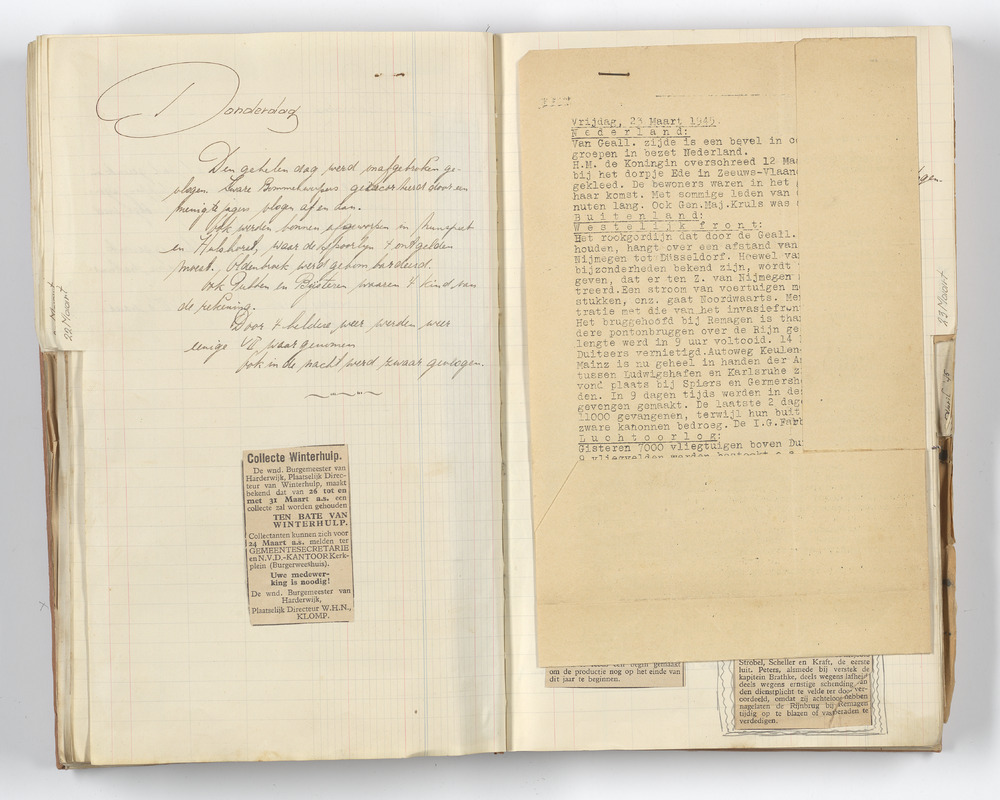 Donderdag
Den gehelen dag werd onafgebroken ge-
vlogen. Zware Bommenwerpers geëscorteerd door een
menigte jagers vlogen af en aan.
Ook werden bommen afgeworpen en Nunspeet
en Hulshorst, waar de spoorlyn 't ontgelden
moest. Oldenbroek werd gebombardeerd.
Ook Putten en Bysteren waaren 't kind van
de rekening.
Door 't heldere weer werden weer
eenige V2 waargenomen
ook in de nacht werd zwaar gevlogen.
22 Maart
Collecte Winterhulp.
De wnd. Burgemeester van
Harderwijk, Plaatselijk Direc-
teur van Winterhulp, maakt
bekend dat van 26 tot en
met 31 Maart a.s. een
collecte zal worden gehouden
TEN BATE VAN
WINTERHULP.
Collectanten kunnen zich voor
24 Maart a.s. melden ter
GEMEENTESECRETARIE
en N.V.D.-KANTOOR Kerk-
plein (Burgerweeshuis).
Uwe medewer-
king is noodig!
De wnd. Burgemeester van
Harderwijk,
Plaatselijk Directeur W.H.N.,
KLOMP.
Vrijdag, 23 Maart 1945.
Nederland:
Van Geall. zijde is een bevel in
groepen in bezet Nederland.
H.M. de Koningin overschreed 12 Maa
bij het dorpje Ede in Zeeuws-Vlaan
gekleed. De bewoners waren in het
haar komst. Met sommige leden van
nuten lang. Ook Gen.Maj.Kruls was
Buitenland:
Westelijk front:
Het rookgordijn dat door de Geall.
houden, hangt over een afstand van
Nijmegen tot Düsseldorf. Hoewel va
bijzonderheden bekend zijn, wordt
geven, dat er ten Z. van Nijmegen
treerd.Een stroom van voertuigen m
stukken, onz. gaat Noordwaarts. Me
tratie met die van het invasiefron
Het bruggehoofd bij Remagen is tha
dere pontonbruggen over de Rijn ge
lengte werd in 9 uur voltooid. 14
Duitsers vernietigd.Autoweg Keulen-
Mainz is nu geheel in handen der A
tussen Ludwigshafen en Karlsruhe z
vond plaats bij Spiers en Germershe
den. In 9 dagen tijds werden in de
gevangen gemaakt. De laatste 2 dage
11000 gevangenen, terwijl hun buit
zware kanonnen bedroeg. De I.G.Farb
Luchtoorlog:
Gisteren 7000 vliegtuigen boven Du
9 vliegvelden werden bestookt
gen.
23 Maart
om de productie nog op het einde van
dit jaar te beginnen.
Strobel, Scheller en Kraft, de eerste
luit. Peters, alsmede bij verstek de
kapitein Brathke, deels wegens lafheid
deels wegens ernstige schending van
den dienstplicht te velde ter dood ver-
oordeeld, omdat zij achteloos hebben
nagelaten de Rijnbrug bij Remagen
tijdig op te blazen of van beraden te
verdedigen.